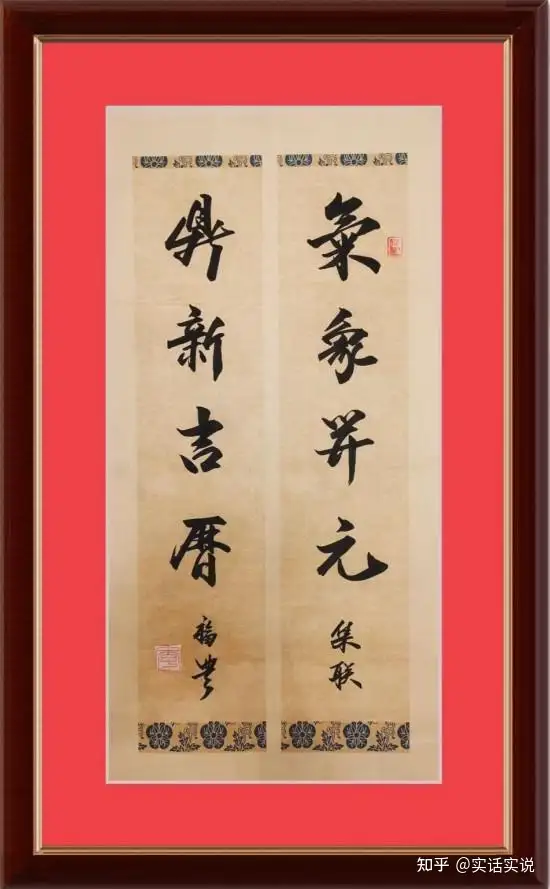 氣象開元
集联
鼎新吉曆
福
知乎 @实话实说